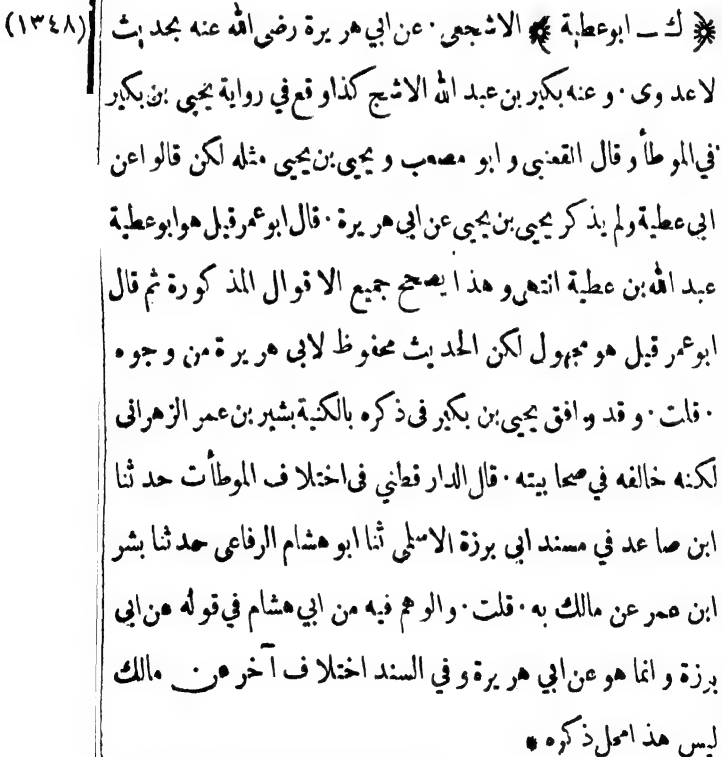 ﴿ ك ـ ابوعطية ﴾ الاشجعى · عن ابي هر يرة رضى الله عنه بحد يث (١٣٤٨)
لاعد وى · و عنه بكير بن عبد الله الاشج كذاو قع في رواية يحيى بن بكير
في المو طأ و قال القعنبى و ابو مصعب و يحيى بن يحيى مثله لكن قالو اعن
ابى عطية ولم يذ كر يحيى بن يحيى عن ابى هر يرة · قال ابو عمر قيل هوابوعطية
عبد الله بن عطية انتهى و هذ ا يصحح جميع الا قو ال المذ كو رة ثم قال
ابو عمر قيل هو مجهول لكن الحد يث محفو ظ لابى هر ير ة من و جو ه
· قلت · و قد و افق يحيى بن بكير فى ذ كره بالكنية بشير بن عمر الزهرانى
لكنه خالفه في صحا بيته · قال الدار قطني فى اختلا ف الموطأت حد ثنا
ابن صا عد في مسند ابى برزة الاسلمى ثنا ابو هشام الرفاعى حد ثنا بشر
ابن عمر عن مالك به · قلت · و الو هم فيه من ابي هشام في قو له عن ابى
برزة و انما هو عن ابي هر يرة و في السند اختلا ف آ خر عن مالك
ليس هذ امحل ذ كره *